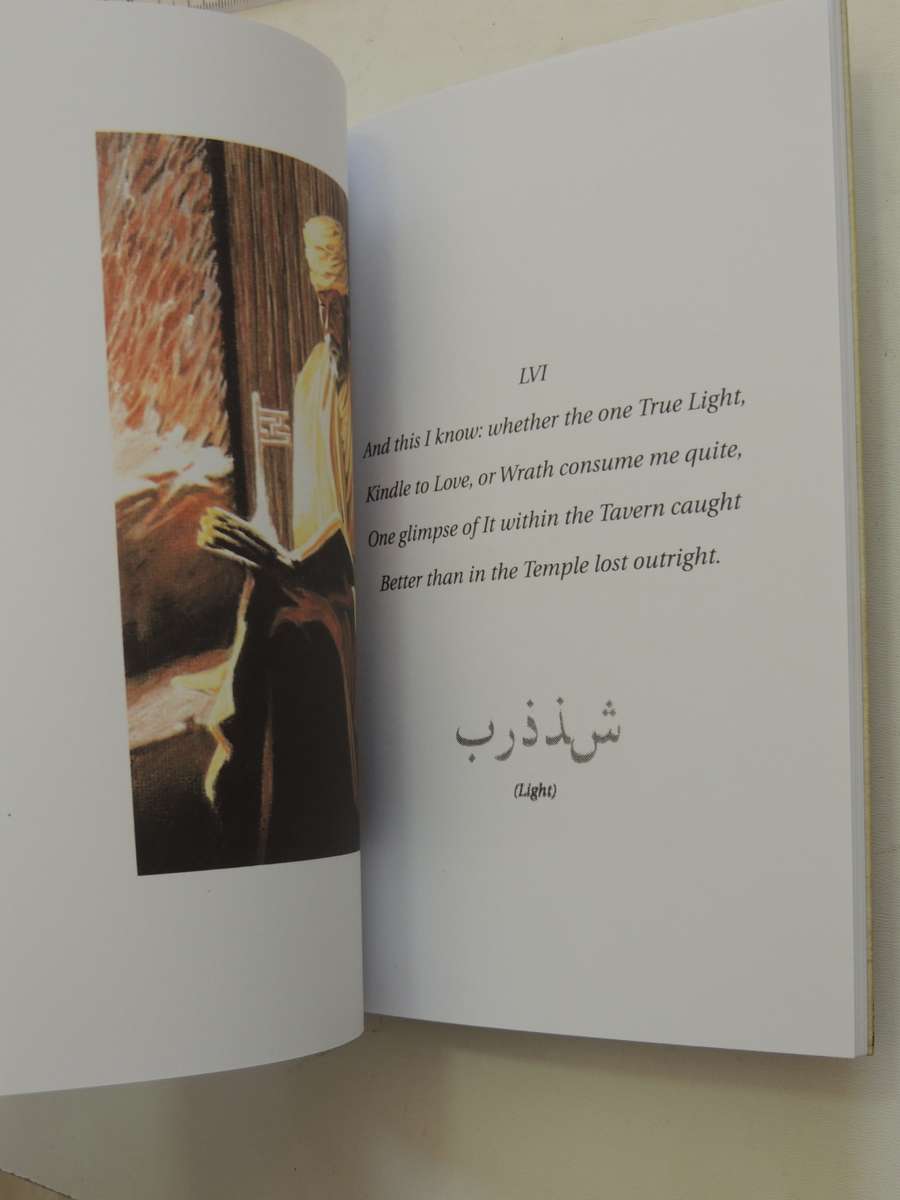 LVI
And this I know: whether the one True Light,
Kindle to Love, or Wrath consume me quite,
One glimpse of It within the Tavern caught
Better than in the Temple lost outright.
شذذرب
(Light)